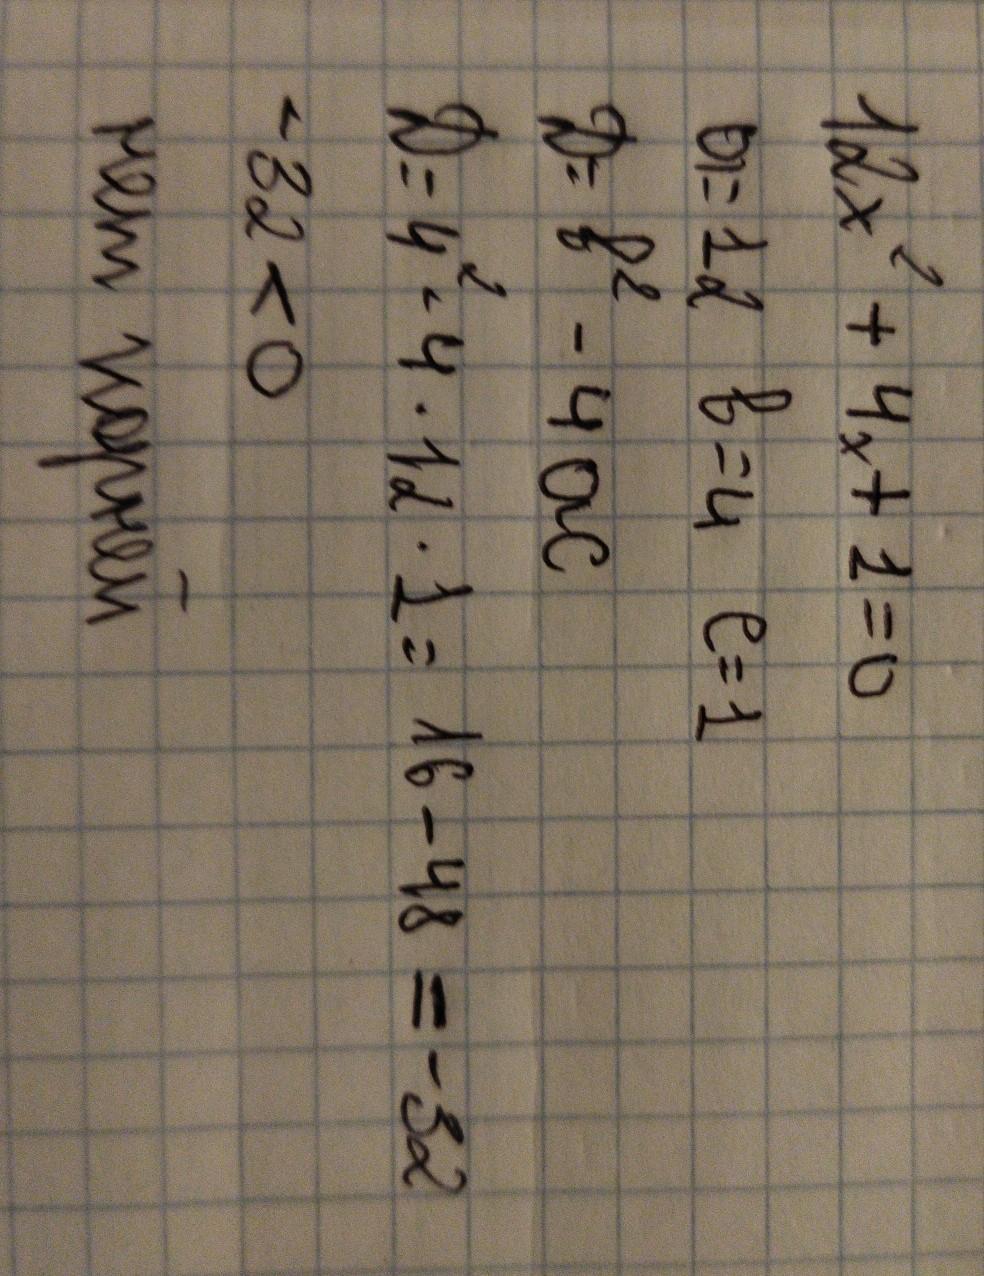 12x² + 4x + 1 = 0
a = 12 b = 4 c = 1
D = b² - 4ac
D = 4² - 4 · 12 · 1 = 16 - 48 = -32
-32 < 0
нет корней